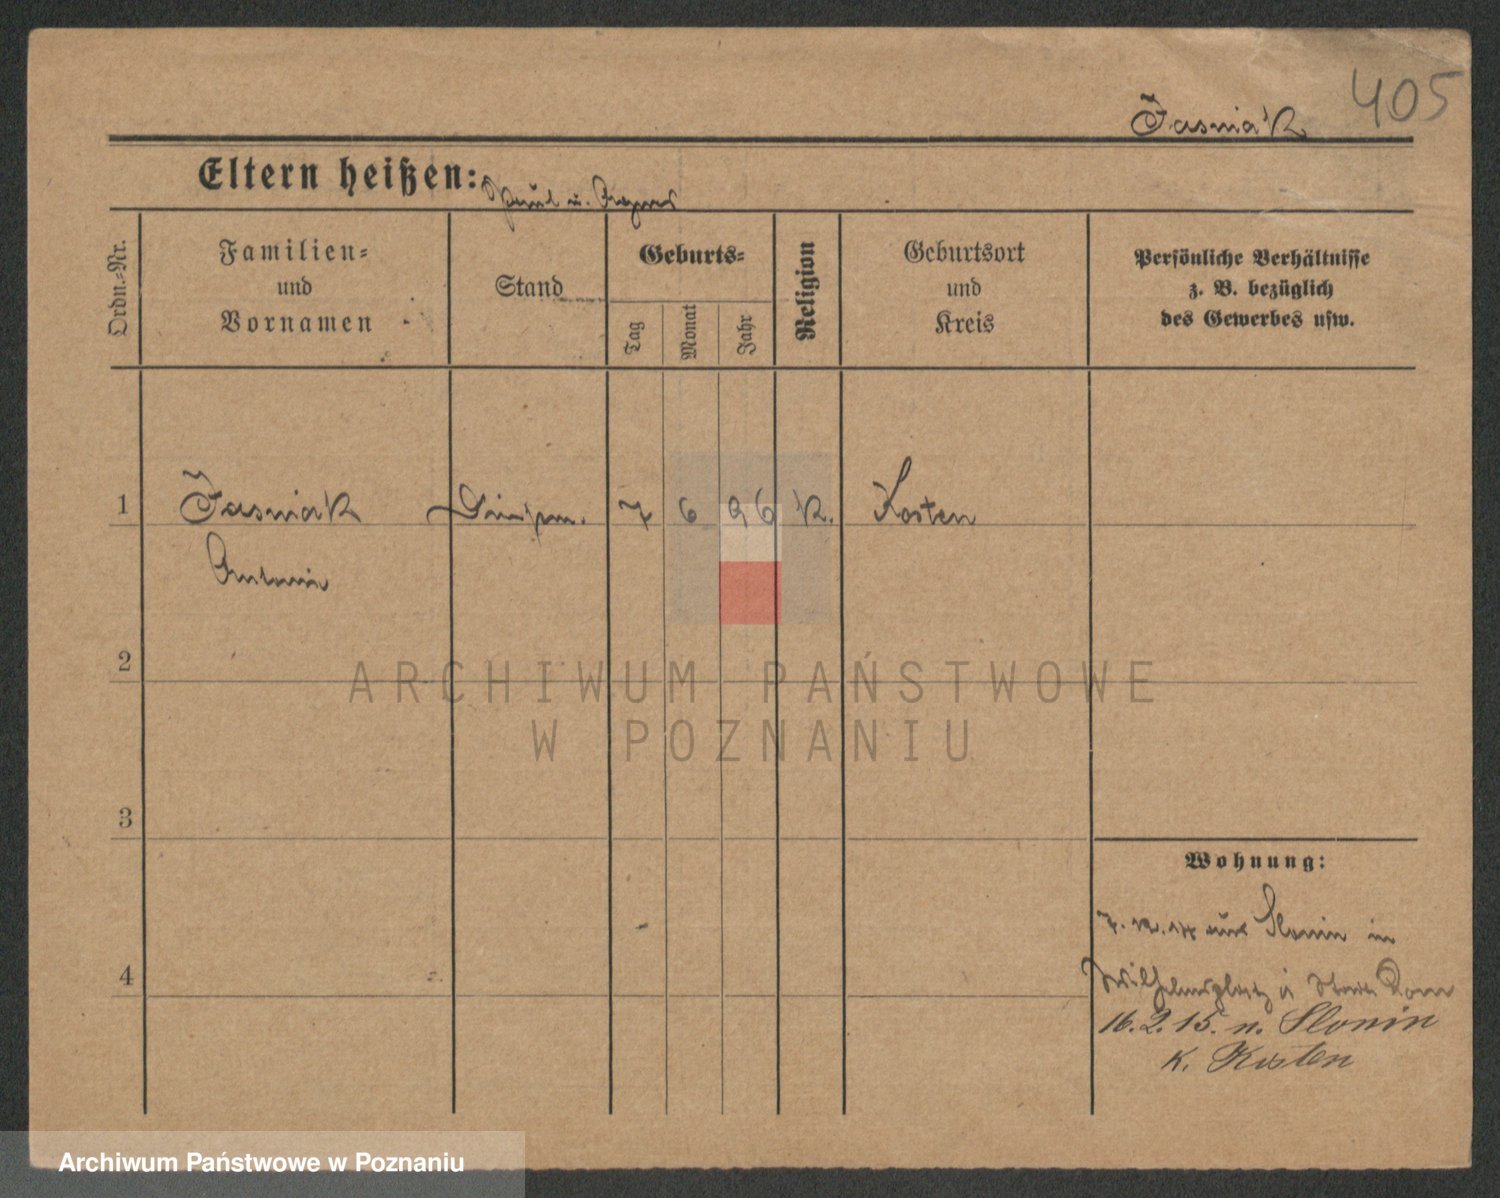 405
Jasniak
Eltern heißen: Paul u. Agnes
Ordn.-Nr.
Familien-
und
Vornamen
Stand
Geburts-
Tag
Monat
Jahr
Religion
Geburtsort
und
Kreis
Persönliche Verhältnisse
z. B. bezüglich
des Gewerbes usw.
1 Jasniak 7 6 96 k. Kosten
Antonie
2
ARCHIWUM PAŃSTWOWE
W POZNANIU
3
Wohnung:
aus Slonin in
4
Wilhelmsplatz
16.2.15. n. Slonin
K. Kosten
Archiwum Państwowe w Poznaniu